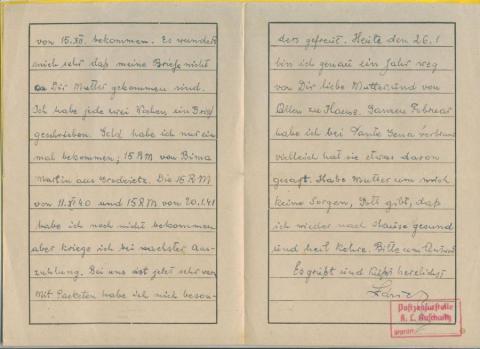 von 15.XII. bekommen. Es wundert
mich sehr daß meine Briefe nicht
Dir Mutter gekommen sind.
Ich habe jede zwei Wochen ein Brief
geschrieben. Geld habe ich nur ein
mal bekommen, 15 RM von
Martin aus Grodzietz. Die 15 RM
von 11.XI 40 und 15 RM von 20.1.41
habe ich noch nicht bekommen
aber kriege ich bei nächster Aus-
zahlung. Bei uns ist jetzt sehr
Mit Packeten habe ich mich beson-
ders gefreut. Heute den 26.1
bin ich genau ein Jahr weg
von Dir liebe Mutter und von
Allen zu Hause. Ganzen Februar
habe ich bei Tante verbracht
vielleich hat sie etwas davon
gesagt. Habe Mutter um mich
keine Sorgen, Gott gibt, daß
ich wieder nach Hause gesund
und heil kehre. Bitte um Antwort
Es grüßt und küßt herzlichst
Postzensurstelle
K. L. Auschwitz